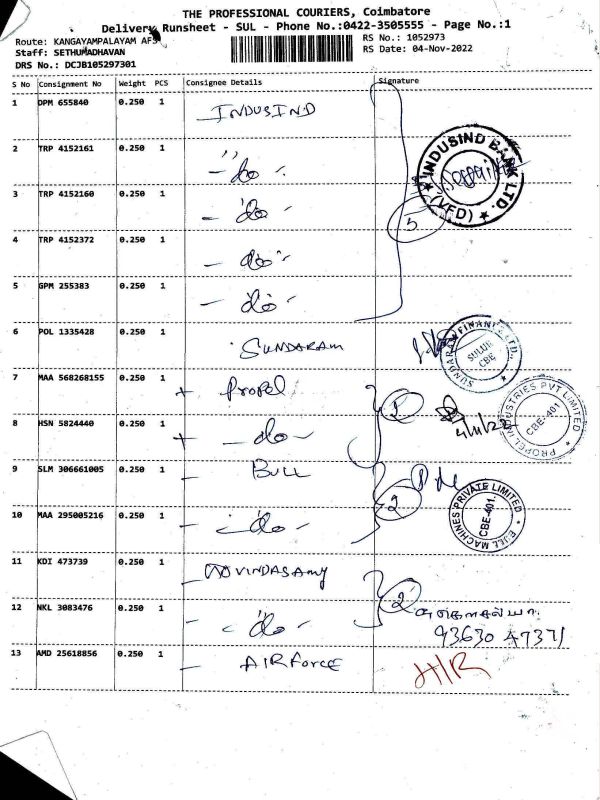 THE PROFESSIONAL COURIERS, Coimbatore
Delivery Runsheet - SUL - Phone No.:0422-3505555 - Page No.:1
Route: KANGAYAMPALAYAM AFS
RS No.: 1052973
Staff: SETHUMADHAVAN
RS Date: 04-Nov-2022
DRS No.: DCJB105297301
S No Consignment No Weight PCS Consignee Details Signature
1 DPM 655840 0.250 1 INDUSIND
2 TRP 4152161 0.250 1 - do -
3 TRP 4152160 0.250 1 - do -
4 TRP 4152372 0.250 1 - do -
5 GPM 255383 0.250 1 - do -
5
INDUSIND BANK LTD. (VFD)
6 POL 1335428 0.250 1 SUNDARAM
SUNDARAM FINANCE LTD., SULUR CBE
7 MAA 568268155 0.250 1 + Propel
8 HSN 5824440 0.250 1 + - do -
4/11/22
PROPEL INDUSTRIES PVT LIMITED CBE-401
9 SLM 306661005 0.250 1 - BULL
10 MAA 295005216 0.250 1 - do -
2
BULL MACHINES PRIVATE LIMITED CBE-401
11 KDI 473739 0.250 1 - GOVINDASAMY
12 NKL 3083476 0.250 1 - do -
2
93630 47371
13 AMD 25618856 0.250 1 - AIRforce
H/R